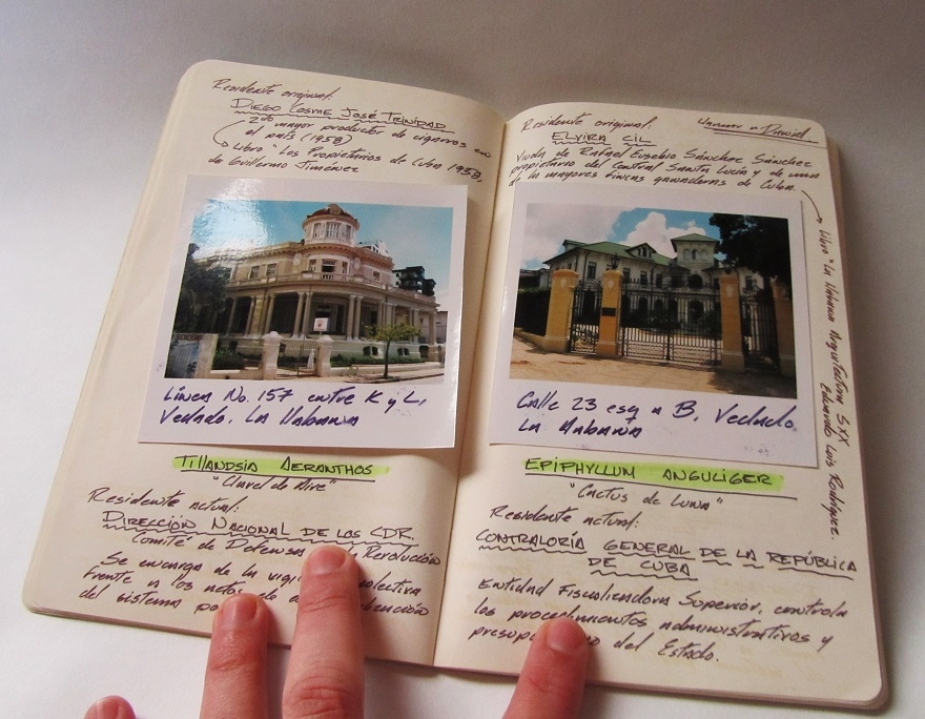 Residente original:
DIEGO COSME JOSÉ TRINIDAD
2do mayor productor de cigarros en
el país (1958)
Libro "Los Propietarios de Cuba 1958,
de Guillermo Jiménez
Línea No. 157 entre K y L,
Vedado. La Habana
TILLANDSIA AERANTHOS
"Clavel de Aire"
Residente actual:
DIRECCIÓN NACIONAL DE LOS CDR.
Comité de Defensa la Revolución
Se encarga de la colectiva
frente a los actos de
del sistema
Residente original:
ELVIRA CIL
Llamar a Daniel
Viuda de Rafael Eusebio Sánchez Sánchez
propietario del Central Santa Lucía y de una
de las mayores fincas ganaderas de Cuba.
Libro "La Habana Arquitectura SXX
Eduardo Luis Rodríguez.
Calle 23 esq a B, Vedado.
La Habana
EPIPHYLLUM ANGULIGER
"Cactus de Luna"
Residente actual:
CONTRALORÍA GENERAL DE LA REPÚBLICA
DE CUBA
Entidad Fiscalizadora Superior, controla
los procedimientos administrativos y
del Estado.